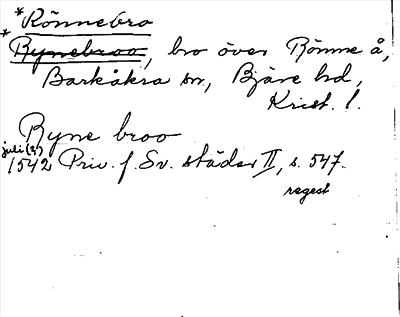 *Rönnebro
*Rynebroo, bro över Rönne å,
Barkåkra sn, Bjäre hd,
Krist. l.
Ryne broo
juli (?)
1542 Priv. f. Sv. städer II, s. 547.
regest